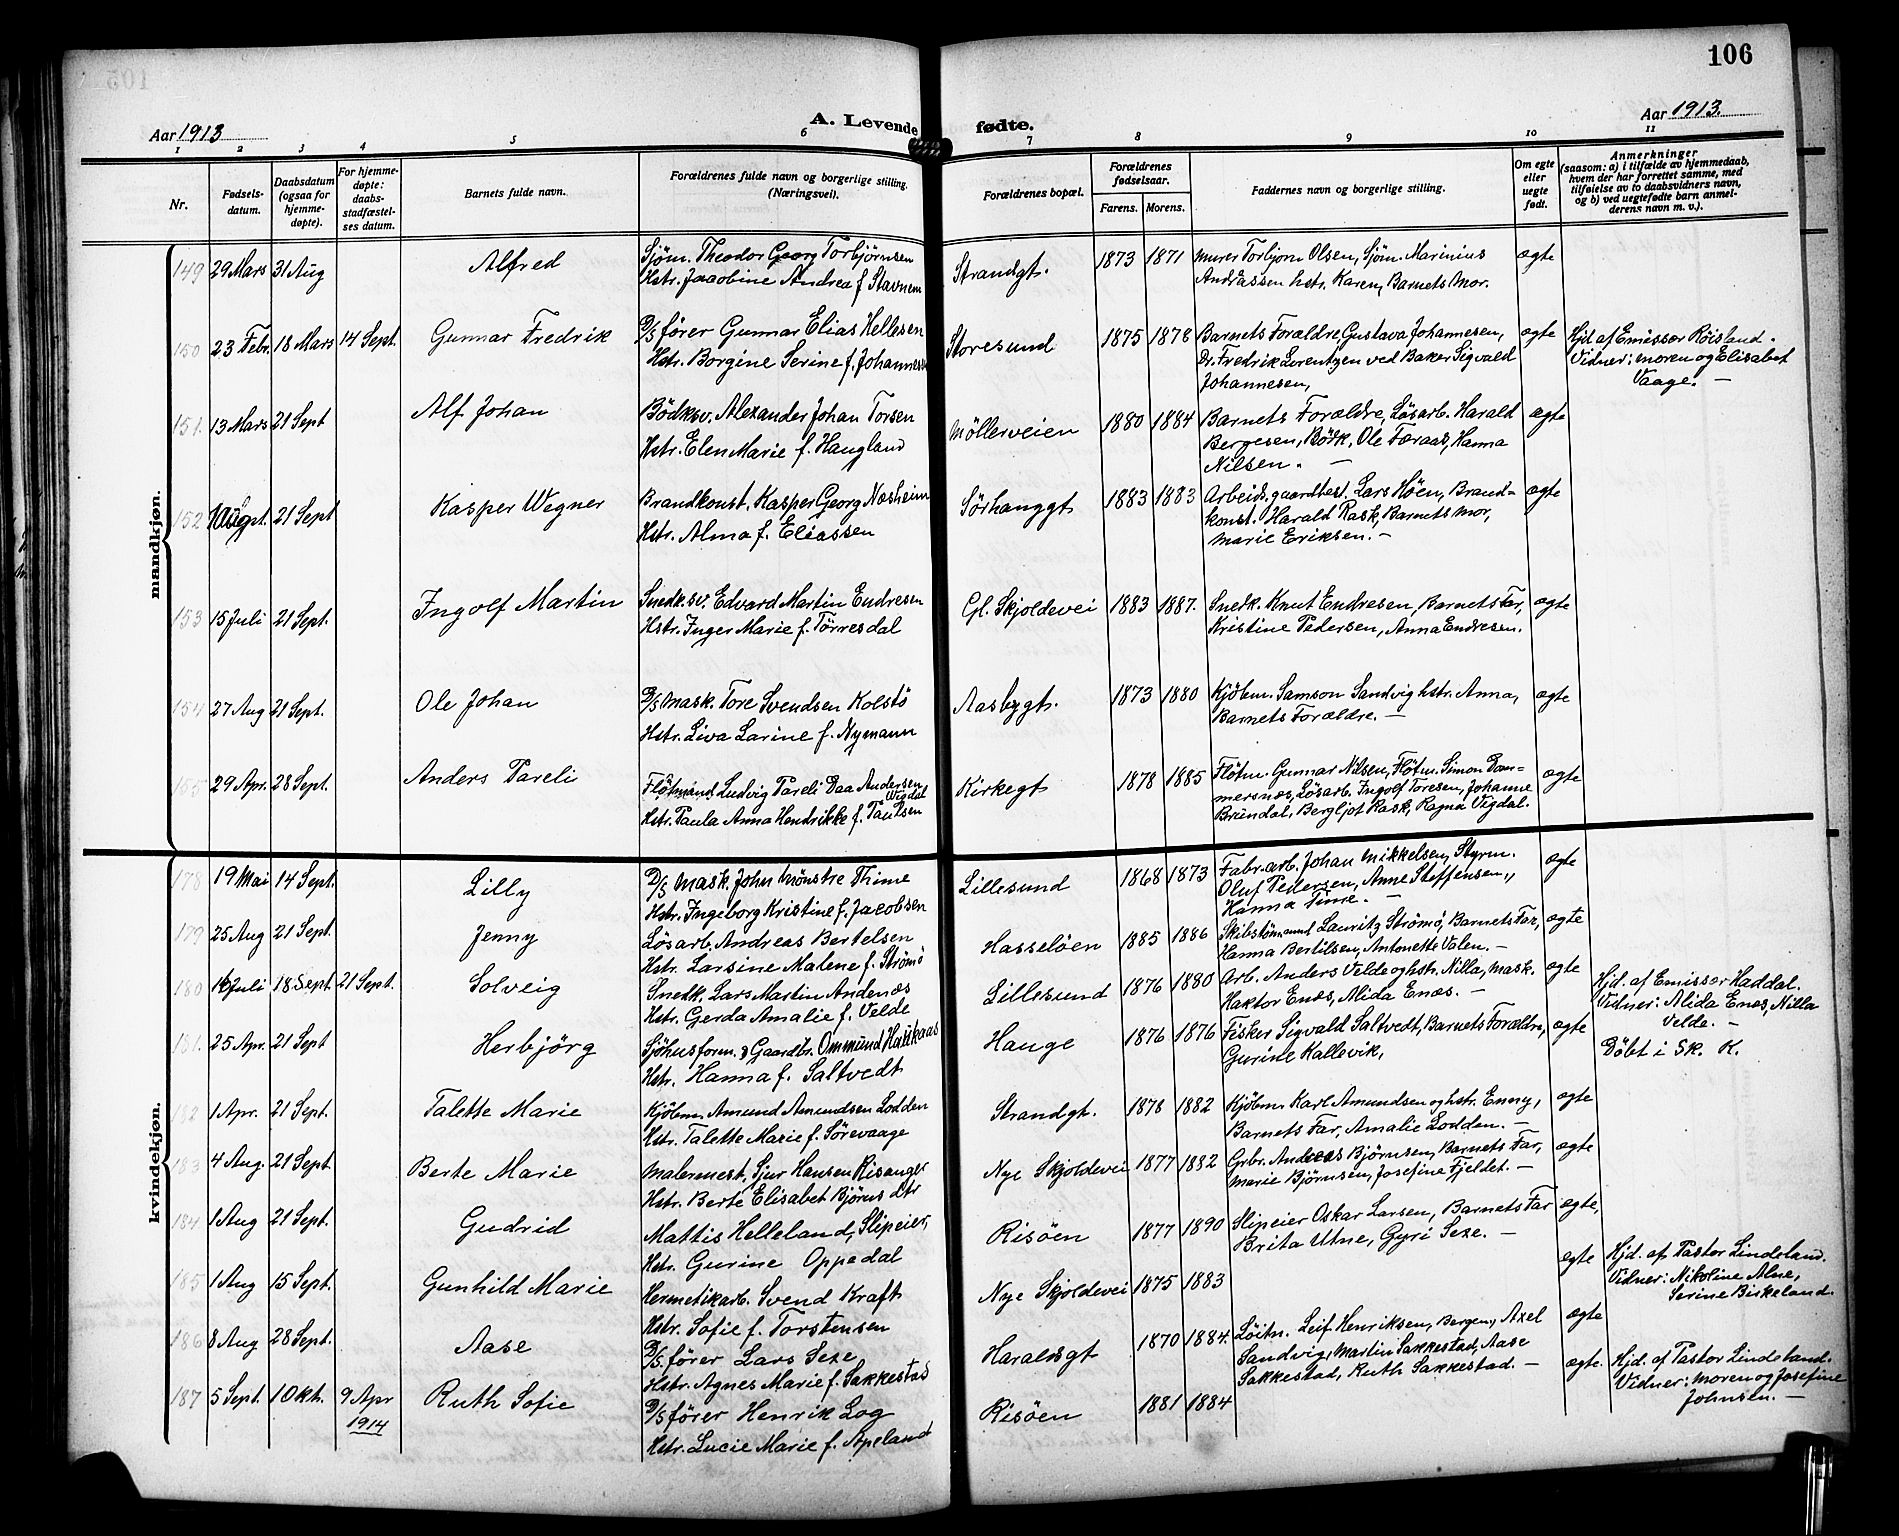 106
Aar 1913
A. Levende fødte.
Aar 1913.
1 2 3 4 5 6 7 8 9 10 11
Nr.
Fødsels-
datum.
Daabsdatum
(ogsaa for
hjemme-
døpte).
For hjemme-
døpte:
daabs-
stadfæstel-
ses datum.
Barnets fulde navn.
Forældrenes fulde navn og borgerlige stilling.
(Næringsvei).
Forældrenes bopæl.
Forældrenes
fødselsaar.
Farens. Morens.
Faddernes navn og borgerlige stilling.
Om egte
eller
uegte
født.
Anmerkninger
(saasom: a) i tilfælde av hjemmedaab,
hvem der har forrettet samme, med
tilføielse av to daabsvidners navn,
og b) ved uegtefødte barn anmel-
derens navn m. v.).
mandkjøn.
149 29 Mars 31 Aug Alfred Sjøm. Theodor Georg Torbjørnsen Strandgt. 1873 1871 Murer Torbjørn Olsen, Sjøm. Marinius ægte
Hstr. Jacobine Andrea f. Stavnem Andråssen hstr. Karen, Barnets Mor.
150 23 Febr. 18 Mars 14 Sept. Gunnar Fredrik D/S fører Gunnar Elias Hellesen Storesund 1875 1878 Barnets Forældre, Gustava Johannesen, ægte Hjd af Emissær Røisland.
Hstr. Borgine Serine f. Johannesen Dr. Fredrik Lorentzen ved Baker Sigvald Vidner: moren og Elisabet
Johannesen, Vaage. —
151. 13 Mars 21 Sept Alf Johan Bödksv. Alexander Johan Torsen Möllerveien 1880 1884 Barnets Forældre, Løsarb. Harald ægte
Hstr. Elen Marie f. Haugland Bergesen, Bödk. Ole Færaas, Hanna
Nilsen. —
152 1 Aug 21 Sept Kasper Wegner Brandkonst. Kasper Georg Næsheim Sörhauggt 1883 1883 Arbeids. gaardbest. Lars Høen, Brand- ægte
Hstr. Alma f. Eliassen konst. Harald Rask, Barnets Mor,
Marie Eriksen. —
153 15 Juli 21 Sept. Ingolf Martin Snedk.sv. Edvard Martin Endresen Gl. Skjoldevei 1883 1887. Snedk. Knut Endresen, Barnets Far, ægte
Hstr. Inger Marie f. Törresdal Kristine Pedersen, Anna Endresen.
154 27 Aug 21 Sept. Ole Johan D/S Mask. Tore Svendsen Kolstö Aasbygt. 1873 1880 Kjöbm. Samson Sandvig hstr. Anna, ægte
Hstr. Liva Larine f. Nymann Barnets Forældre. —
155 29 Apr. 28 Sept. Anders Pareli Flötmand Ludvig Pareli Daa Andersen Kirkegt 1878 1885 Flötm. Gunnar Nilsen, Flötm. Simon Dom- ægte
Wigdal
Hstr. Paula Anna Hendrikke f. Paulsen mersnæs, Løsarb. Ingolf Toresen, Johanne
Brundal, Bergljot Rask, Ragna Vigdal.
kvindekjøn.
178 19 Mai 14 Sept. Lilly D/S Mask. John Mönstre Thime Lillesund 1868 1873 Fabr. arb. Johan Mikkelsen, Styrm. ægte
Hstr. Ingeborg Kristine f. Jacobsen Oluf Pedersen, Anne Steffensen,
Hanna Time. —
179 25 Aug 21 Sept. Jenny Løsarb. Andreas Bertelsen Hasseløen 1885 1886 Skibstömmd Lauritz Strömö, Barnets Far, ægte
Hstr. Larsine Malene f. Strömö Hanna Bertilsen, Antonette Valen. —
180 16 Juli 18 Sept. 21 Sept. Solveig Snedk. Lars Martin Andenæs Lillesund 1876 1880 Arb. Anders Velde og hstr. Nilla, Mask. ægte Hjd. af Emissær Haddal.
Hstr. Gerda Amalie f. Velde Haktor Enæs, Alida Enæs. — Vidner: Alida Enæs, Nilla
Velde. —
181. 25 Apr. 21 Sept Herbjörg Sjöhusform. & Gaardbr. Ommund Haukaas Hauge 1876 1876 Fisker Sigvald Saltvedt, Barnets Forældre, ægte Döbt i Sk. K.
Hstr. Hanna f. Saltvedt Gurine Kallevik,
182 1 Apr. 21 Sept. Talette Marie Kjöbm. Amund Amundsen Lodden Strandgt. 1878 1882 Kjöbm. Karl Amundsen og hstr. Enny, ægte
Hstr. Talette Marie f. Sörevaage Barnets Far, Amalie Lodden. —
183 4 Aug. 21 Sept. Berte Marie Malermest. Sjur Hansen Risanger Nye Skjoldevei 1877 1882 Grbr. Andreas Björnsen, Barnets Far, ægte
Hstr. Berte Elisabet Björns dtr Marie Björnsen, Josefine Fjeldet. —
184 1 Aug 21 Sept. Gudrid Mattis Helleland, Slipeier, Risöen 1877 1890 Slipeier Oskar Larsen, Barnets Far ægte,
Hstr. Gurine Oppedal Brita Utne, Gyri Sexe. —
185 1 Aug 15 Sept. Gunhild Marie Hermetikarb. Svend Kraft Nye Skjoldevei 1875 1883 ægte Hjd. af Pastor Lindeland.
Hstr. Sofie f. Torstensen Vidner: Nikoline Alne,
Serine Birkeland.
186 8 Aug 28 Sept. Aase D/S. fører Lars Sexe Haraldsgt 1870 1884. Løitn. Leif Henriksen, Bergen, Axel ægte
Hstr. Agnes Marie f. Sakkestad Sandvig, Martin Sakkestad, Aase
Sakkestad, Ruth Sakkestad. —
187 5 Sept. 1 Okt. 9 Apr 1914 Ruth Sofie D/S fører Henrik Log Risöen 1881 1884 ægte. Hjd. af Pastor Lindeland.
Hstr. Lucie Marie f. Apeland Vidner: moren og Josefine
Johnsen. —